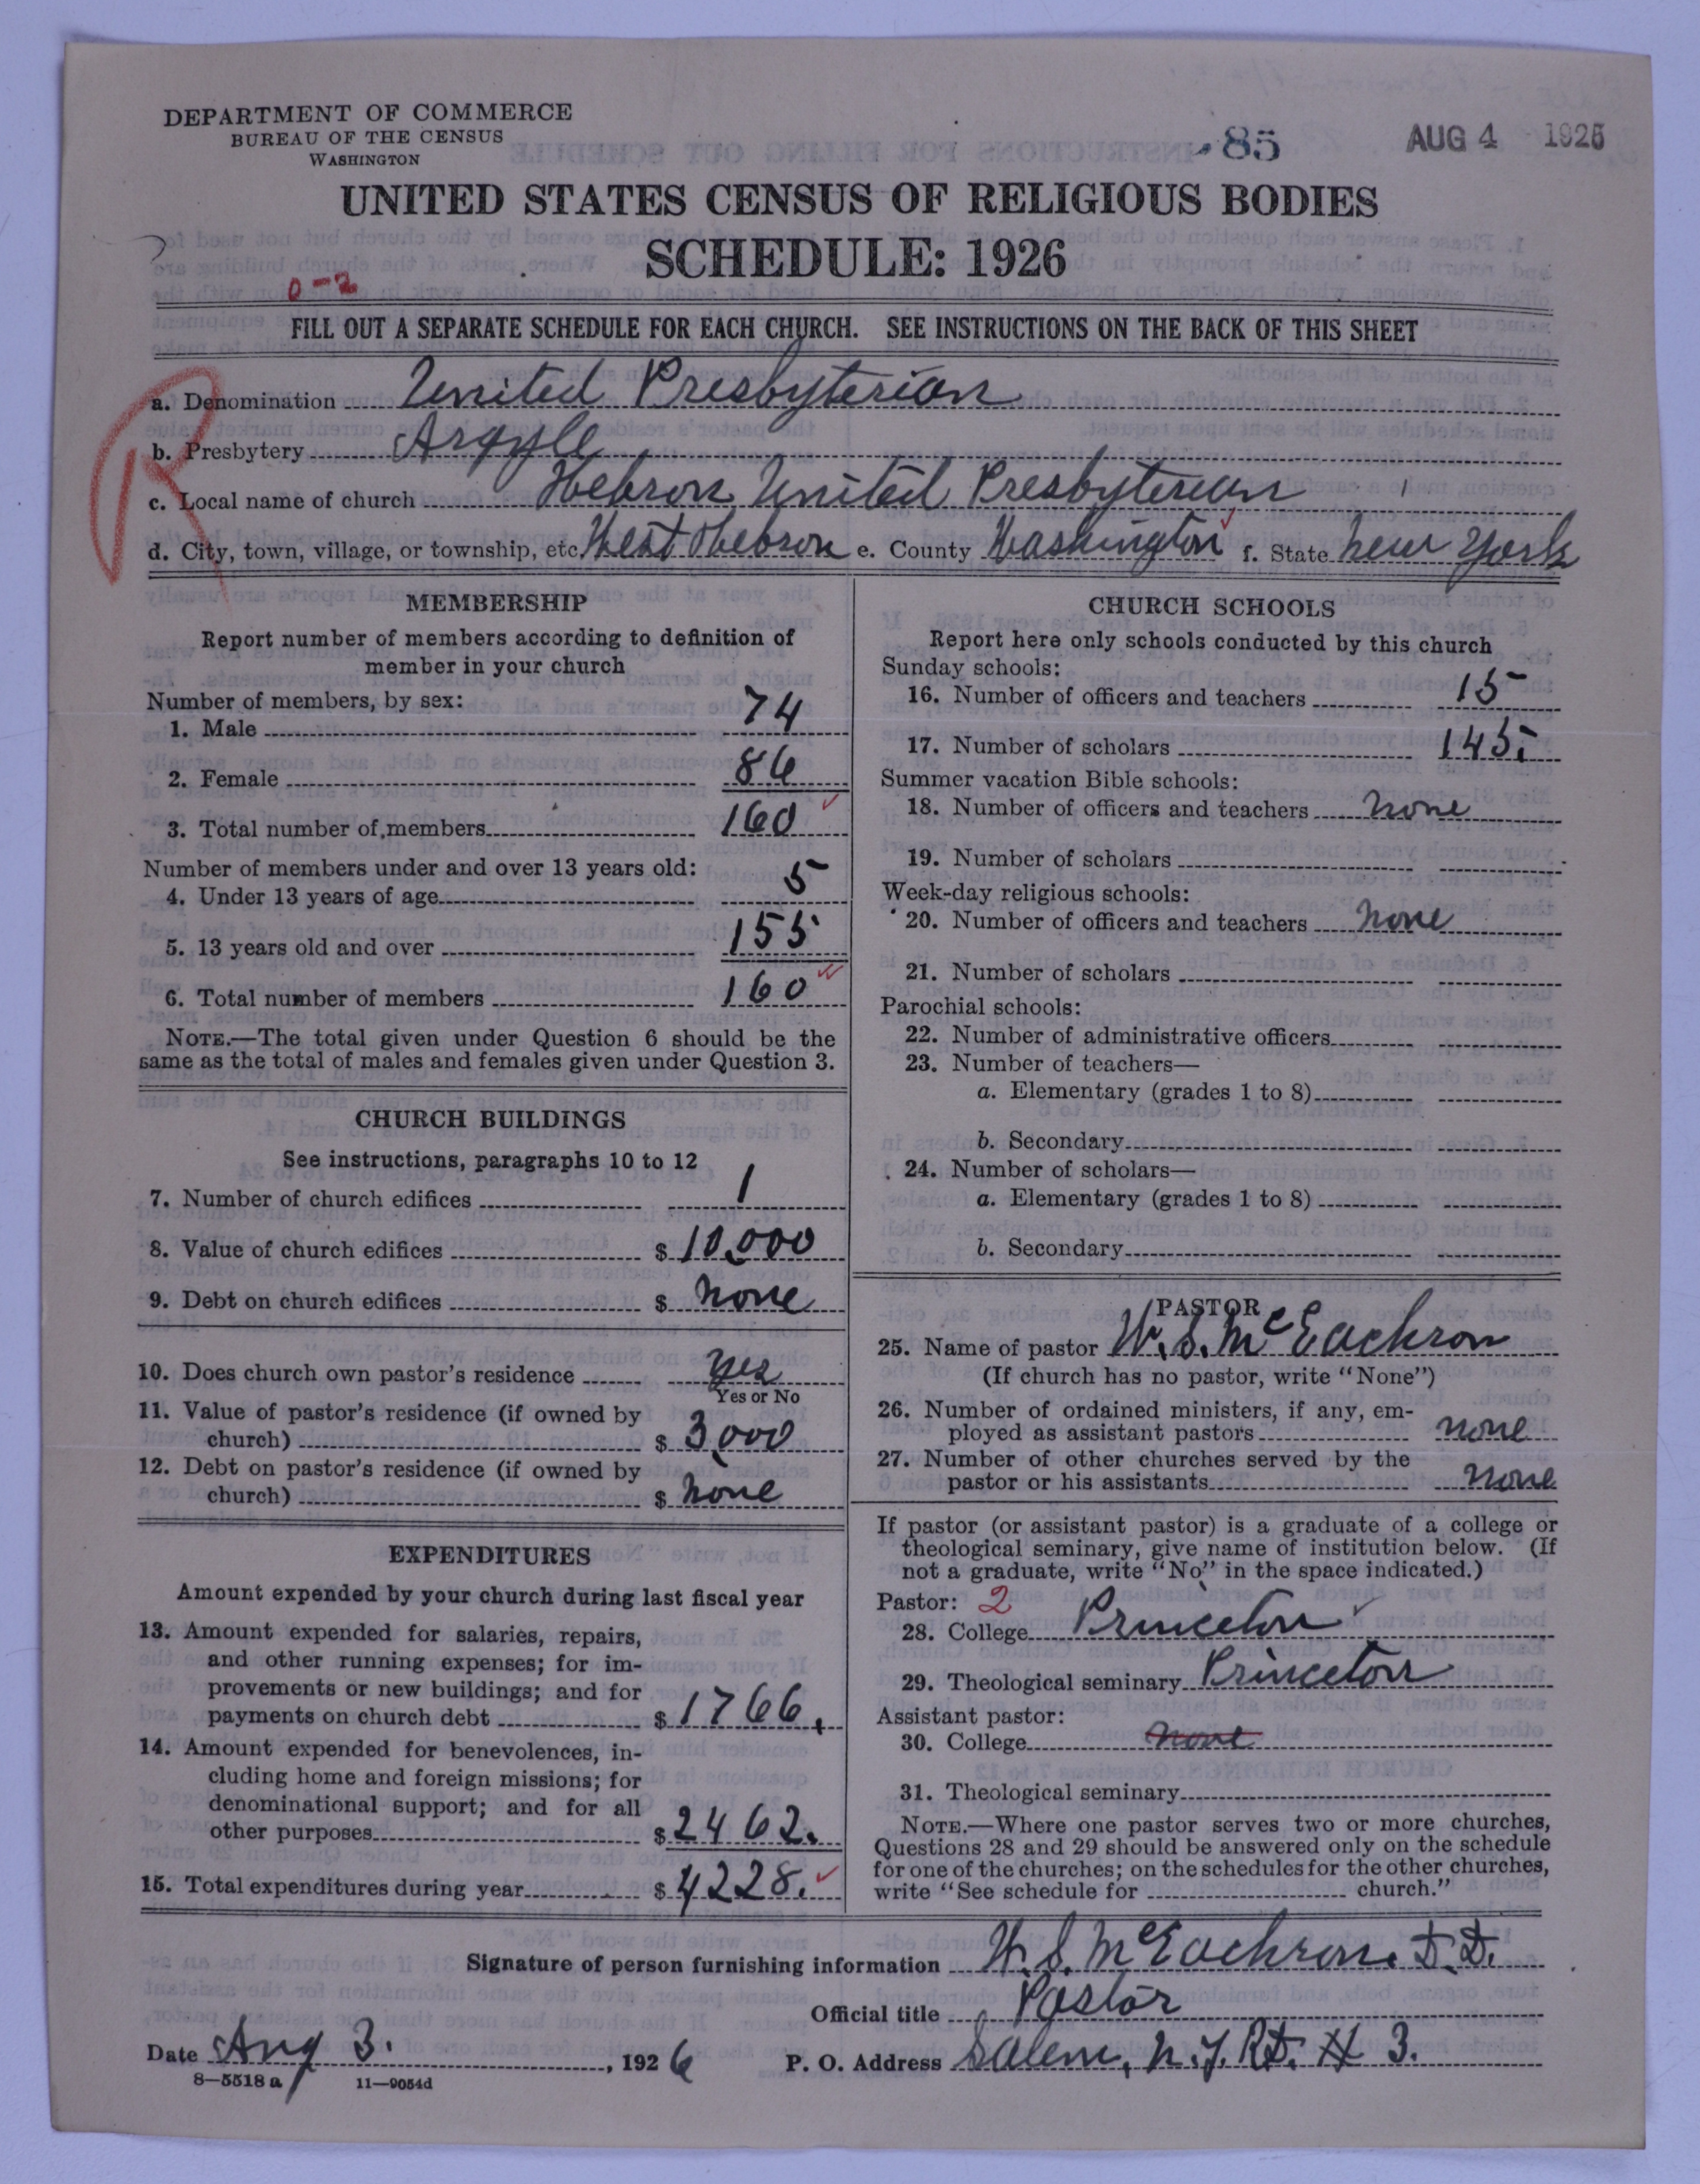 DEPARTMENT OF COMMERCE
BUREAU OF THE CENSUS
WASHINGTON
85
AUG 4 1926
UNITED STATES CENSUS OF RELIGIOUS BODIES
SCHEDULE: 1926
0-2
FILL OUT A SEPARATE SCHEDULE FOR EACH CHURCH. SEE INSTRUCTIONS ON THE BACK OF THIS SHEET
R
a. Denomination United Presbyterian
b. Presbytery Argyle
c. Local name of church Hebron United Presbyterian
d. City, town, village, or township, etc. West Hebron e. County Washington f. State New York
MEMBERSHIP
Report number of members according to definition of
member in your church
Number of members, by sex:
1. Male 74
2. Female 86
3. Total number of members 160
Number of members under and over 13 years old:
4. Under 13 years of age 5
5. 13 years old and over 155
6. Total number of members 160
NOTE.—The total given under Question 6 should be the
same as the total of males and females given under Question 3.
CHURCH BUILDINGS
See instructions, paragraphs 10 to 12
7. Number of church edifices 1
8. Value of church edifices $ 10,000
9. Debt on church edifices $ none
10. Does church own pastor's residence yes
Yes or No
11. Value of pastor's residence (if owned by
church) $ 3,000
12. Debt on pastor's residence (if owned by
church) $ none
EXPENDITURES
Amount expended by your church during last fiscal year
13. Amount expended for salaries, repairs,
and other running expenses; for im-
provements or new buildings; and for
payments on church debt $ 1766.
14. Amount expended for benevolences, in-
cluding home and foreign missions; for
denominational support; and for all
other purposes $ 2462.
15. Total expenditures during year $ 4228.
CHURCH SCHOOLS
Report here only schools conducted by this church
Sunday schools:
16. Number of officers and teachers 15
17. Number of scholars 145.
Summer vacation Bible schools:
18. Number of officers and teachers none
19. Number of scholars
Week-day religious schools:
20. Number of officers and teachers none
21. Number of scholars
Parochial schools:
22. Number of administrative officers
23. Number of teachers—
a. Elementary (grades 1 to 8)
b. Secondary
24. Number of scholars—
a. Elementary (grades 1 to 8)
b. Secondary
PASTOR
25. Name of pastor W. S. McEachron
(If church has no pastor, write "None")
26. Number of ordained ministers, if any, em-
ployed as assistant pastors none
27. Number of other churches served by the
pastor or his assistants none
If pastor (or assistant pastor) is a graduate of a college or
theological seminary, give name of institution below. (If
not a graduate, write "No" in the space indicated.)
Pastor: 2
28. College Princeton
29. Theological seminary Princeton
Assistant pastor:
30. College none
31. Theological seminary
NOTE.—Where one pastor serves two or more churches,
Questions 28 and 29 should be answered only on the schedule
for one of the churches; on the schedules for the other churches,
write "See schedule for church."
Signature of person furnishing information W. S. McEachron. D.D.
Official title Pastor
Date Aug 3. , 1926 P. O. Address Salem, N.Y. RD. # 3.
8—5518 a 11—9054d